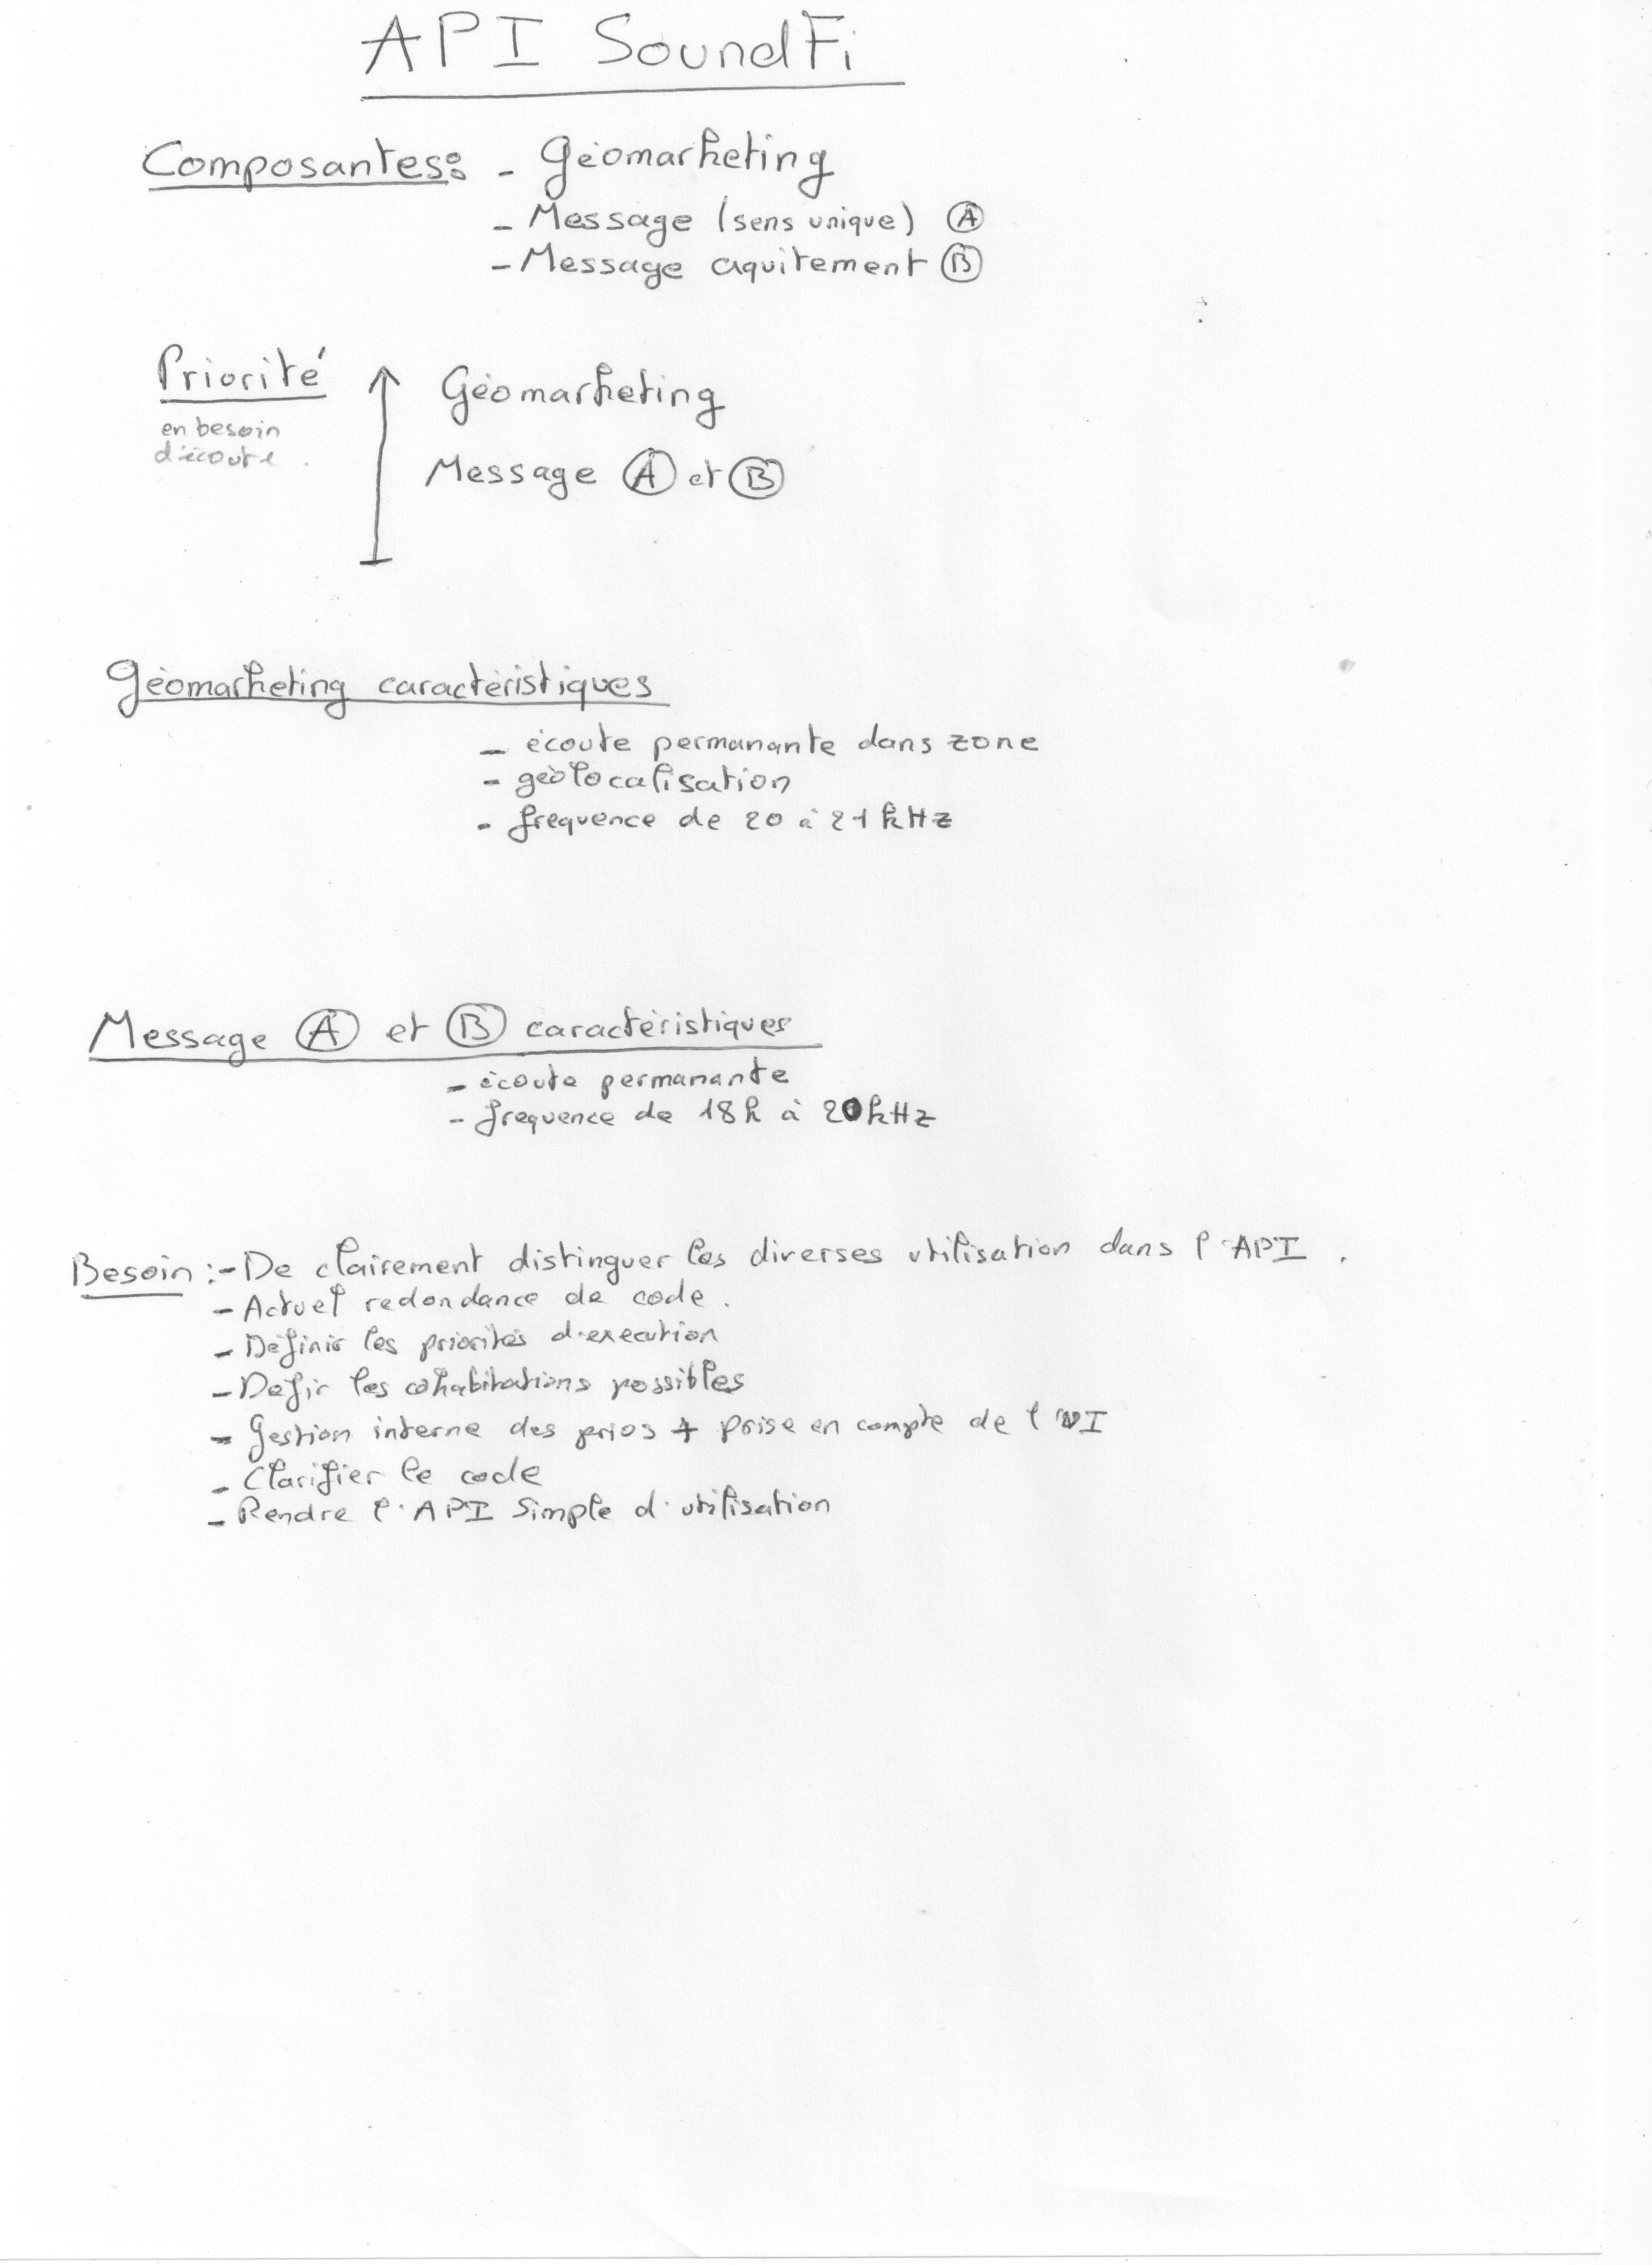 API SoundFi
Composantes: - Géomarketing
- Message (sens unique) Ⓐ
- Message aquitement Ⓑ
Priorité
en besoin
d'écoute.
Géomarketing
Message Ⓐ et Ⓑ
Géomarketing caractéristiques
- écoute permanante dans zone
- géolocalisation
- frequence de 20 à 21 kHz
Message Ⓐ et Ⓑ caractéristiques
- écoute permanante
- frequence de 18k à 20kHz
Besoin :- De clairement distinguer les diverses utilisation dans l'API.
- Actuel redondance de code.
- Définir les priorités d'execution
- Défir les cohabitations possibles
- Gestion interne des prios + prise en compte de l'UI
- Clarifier le code
- Rendre l'API simple d'utilisation